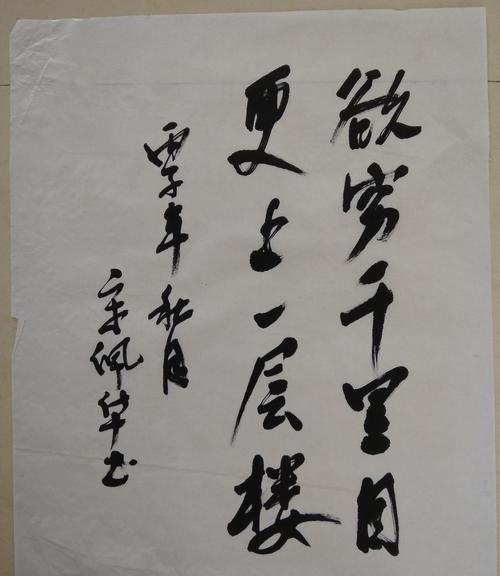 欲穷千里目
更上一层楼
丙子年 秋月
宋佩华书